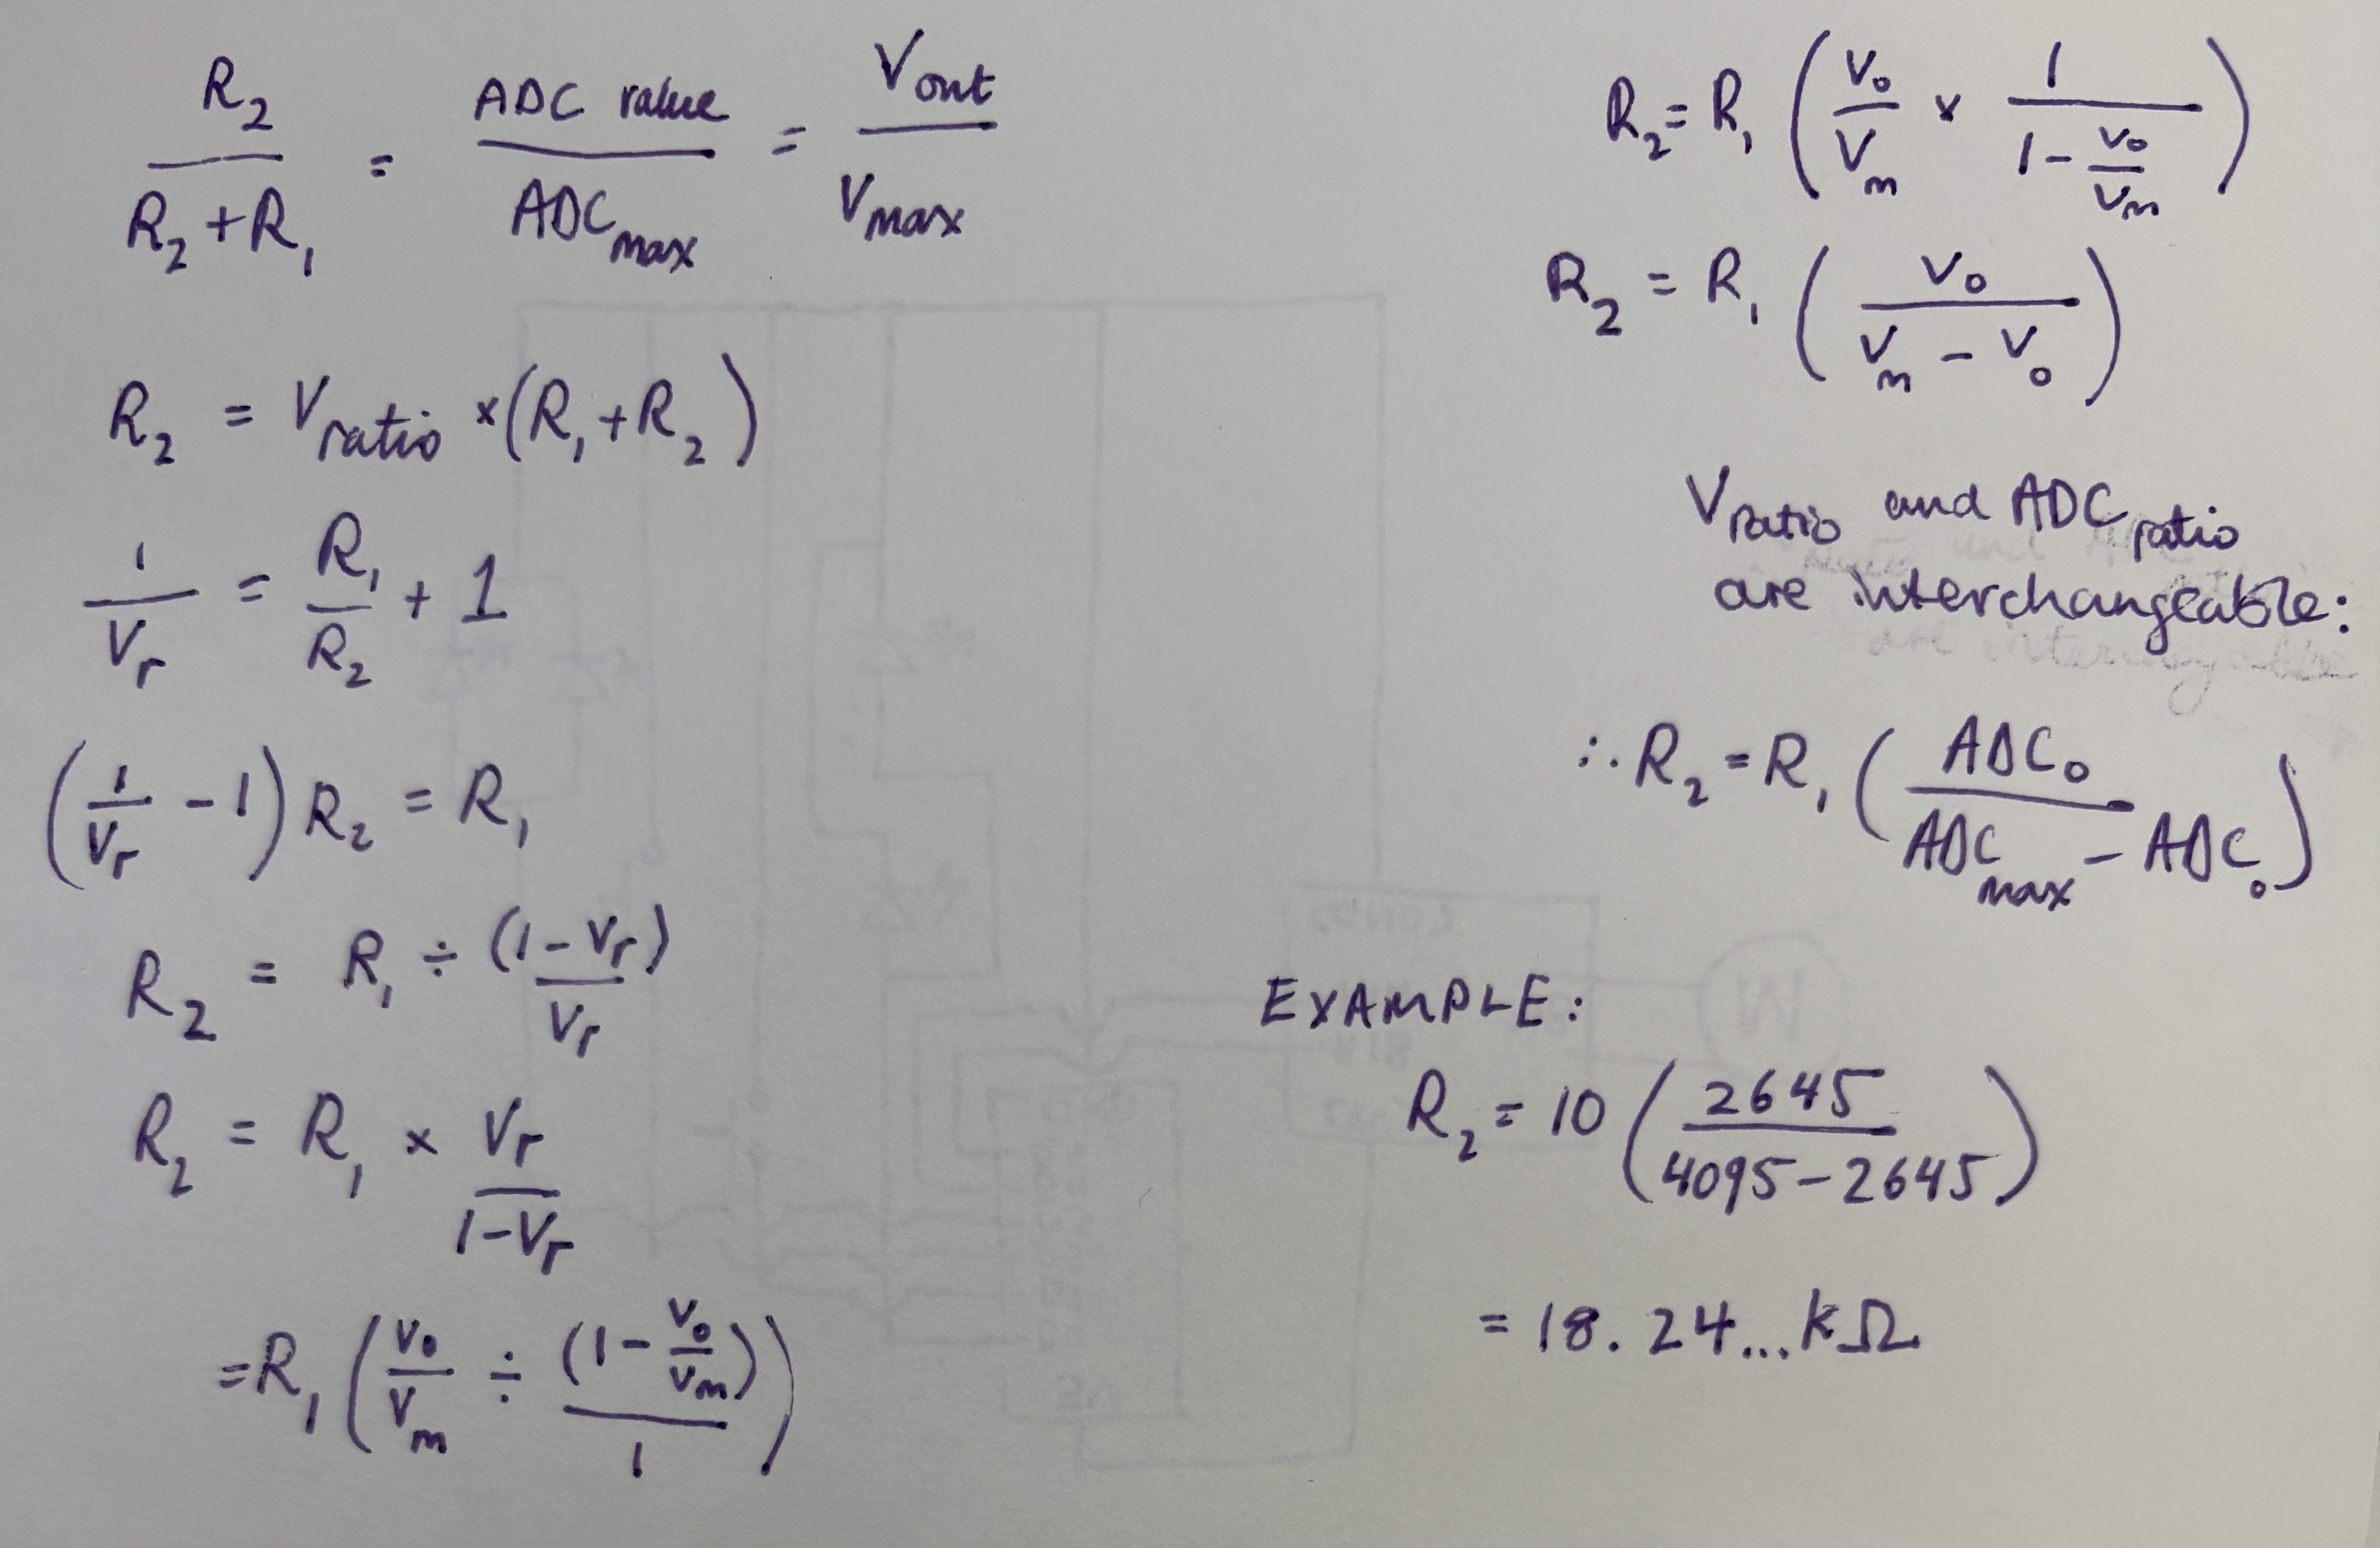 R₂/(R₂+R₁) = ADC value/ADCmax = Vout/Vmax
R₂ = Vratio ×(R₁+R₂)
1/Vr = R₁/R₂ + 1
(1/Vr - 1) R₂ = R₁
R₂ = R₁ ÷ (1-Vr)/Vr
R₂ = R₁ × Vr/(1-Vr)
=R₁ (Vo/Vm ÷ (1-Vo/Vm)/1)
R₂= R₁ (Vo/Vm × 1/(1-Vo/Vm))
R₂ = R₁ (Vo/(Vm - Vo))
Vratio and ADCratio
are interchangeable:
∴ R₂ = R₁ (ADCo/(ADCmax - ADCo))
EXAMPLE:
R₂ = 10 (2645/(4095-2645))
= 18.24...kΩ